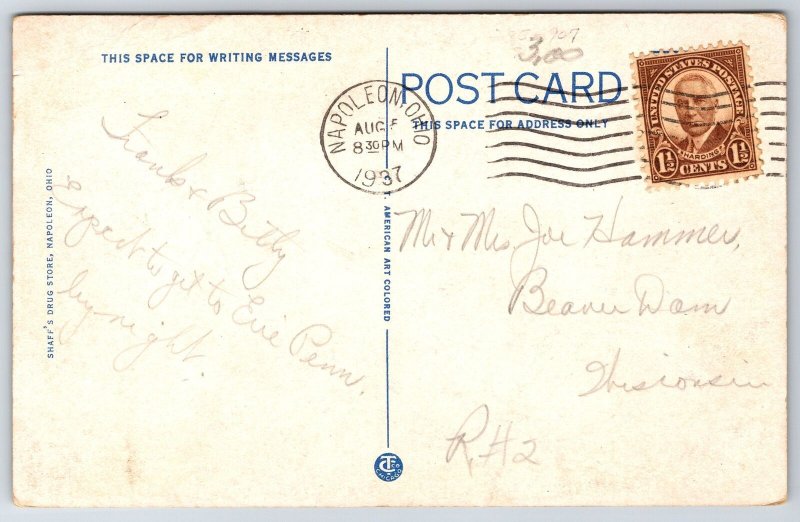 THIS SPACE FOR WRITING MESSAGES
Frank & Betty
Expect to get to Erie Penn,
by night.
SHAFF'S DRUG STORE, NAPOLEON, OHIO
C.T. AMERICAN ART COLORED
CT CO CHICAGO
907
3,00
POST CARD
THIS SPACE FOR ADDRESS ONLY
NAPOLEON, OHIO
AUG 5
8 30 PM
1937
UNITED STATES POSTAGE
HARDING
1½ CENTS 1½
Mr & Mrs Joe Hammer,
Beaver Dam
Wisconsin
R.#2